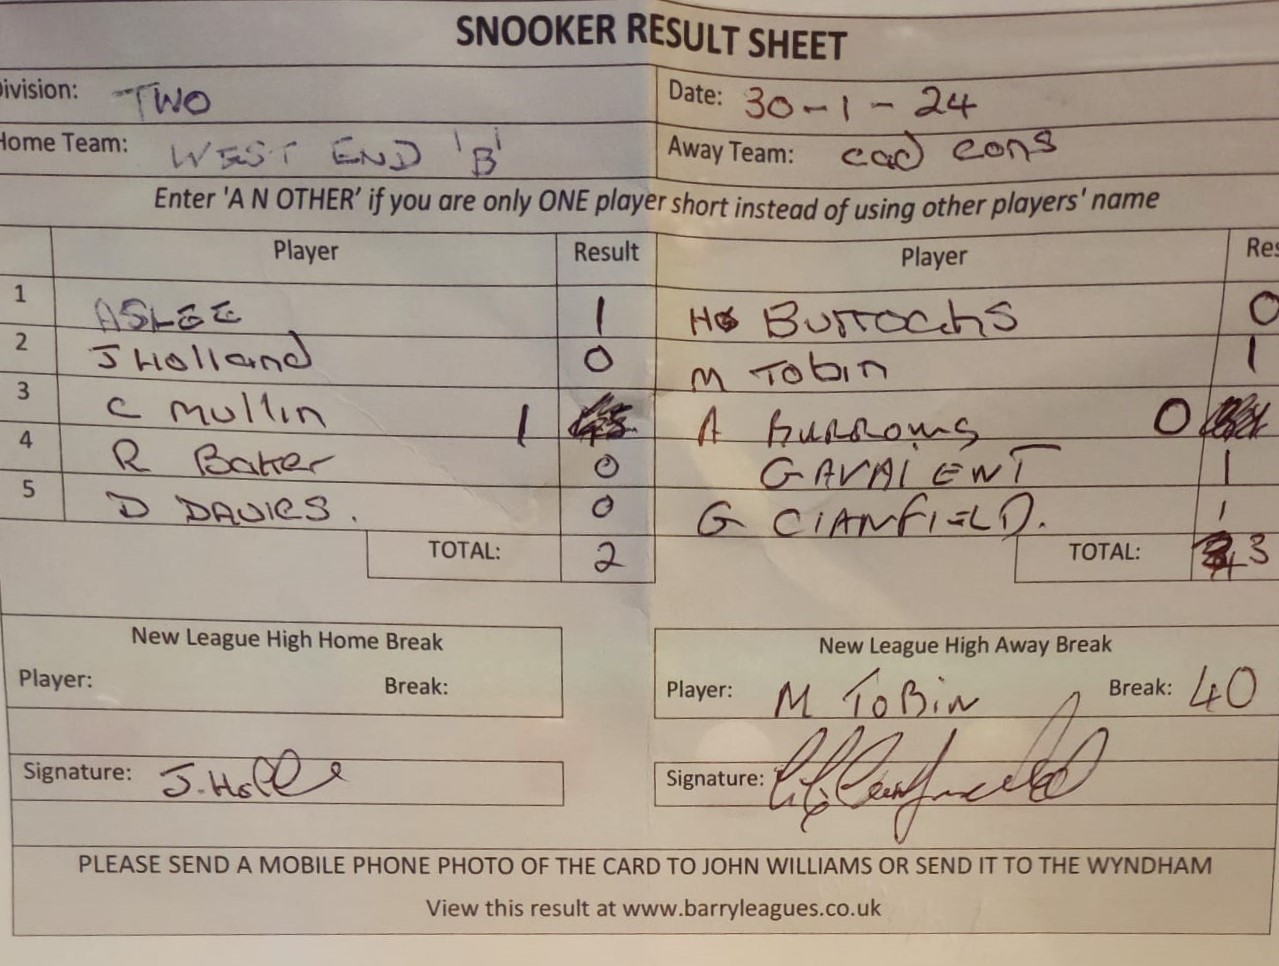 SNOOKER RESULT SHEET
Division: TWO Date: 30-1-24
Home Team: WEST END 'B' Away Team: cad cons
Enter 'A N OTHER' if you are only ONE player short instead of using other players' name
Player Result Player Res
1 ASLEE 1 BURROCHS 0
2 J Holland 0 M Tobin 1
3 C Mullin 1 A BURROWS 0
4 R Baker 0 GAVAIENT 1
5 D DAVIES. 0 G CIANFIELD. 1
TOTAL: 2 TOTAL: 3
New League High Home Break New League High Away Break
Player: Break: Player: M TOBiN Break: 40
Signature: Signature:
PLEASE SEND A MOBILE PHONE PHOTO OF THE CARD TO JOHN WILLIAMS OR SEND IT TO THE WYNDHAM
View this result at www.barryleagues.co.uk